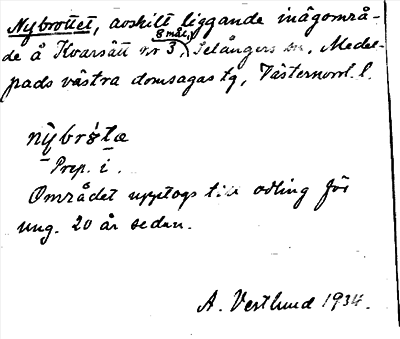 Nybrottet, avskilt liggande inägområ-
8 mål,
de å Kvarsätt nr 3, Selångers sn, Medel-
pads västra domsagas tg, Västernorrl. l.
nỳbrɵ̀tæ
Prep. i.
Området upptogs till odling för
ung. 20 år sedan.
A. Vestlund 1934.